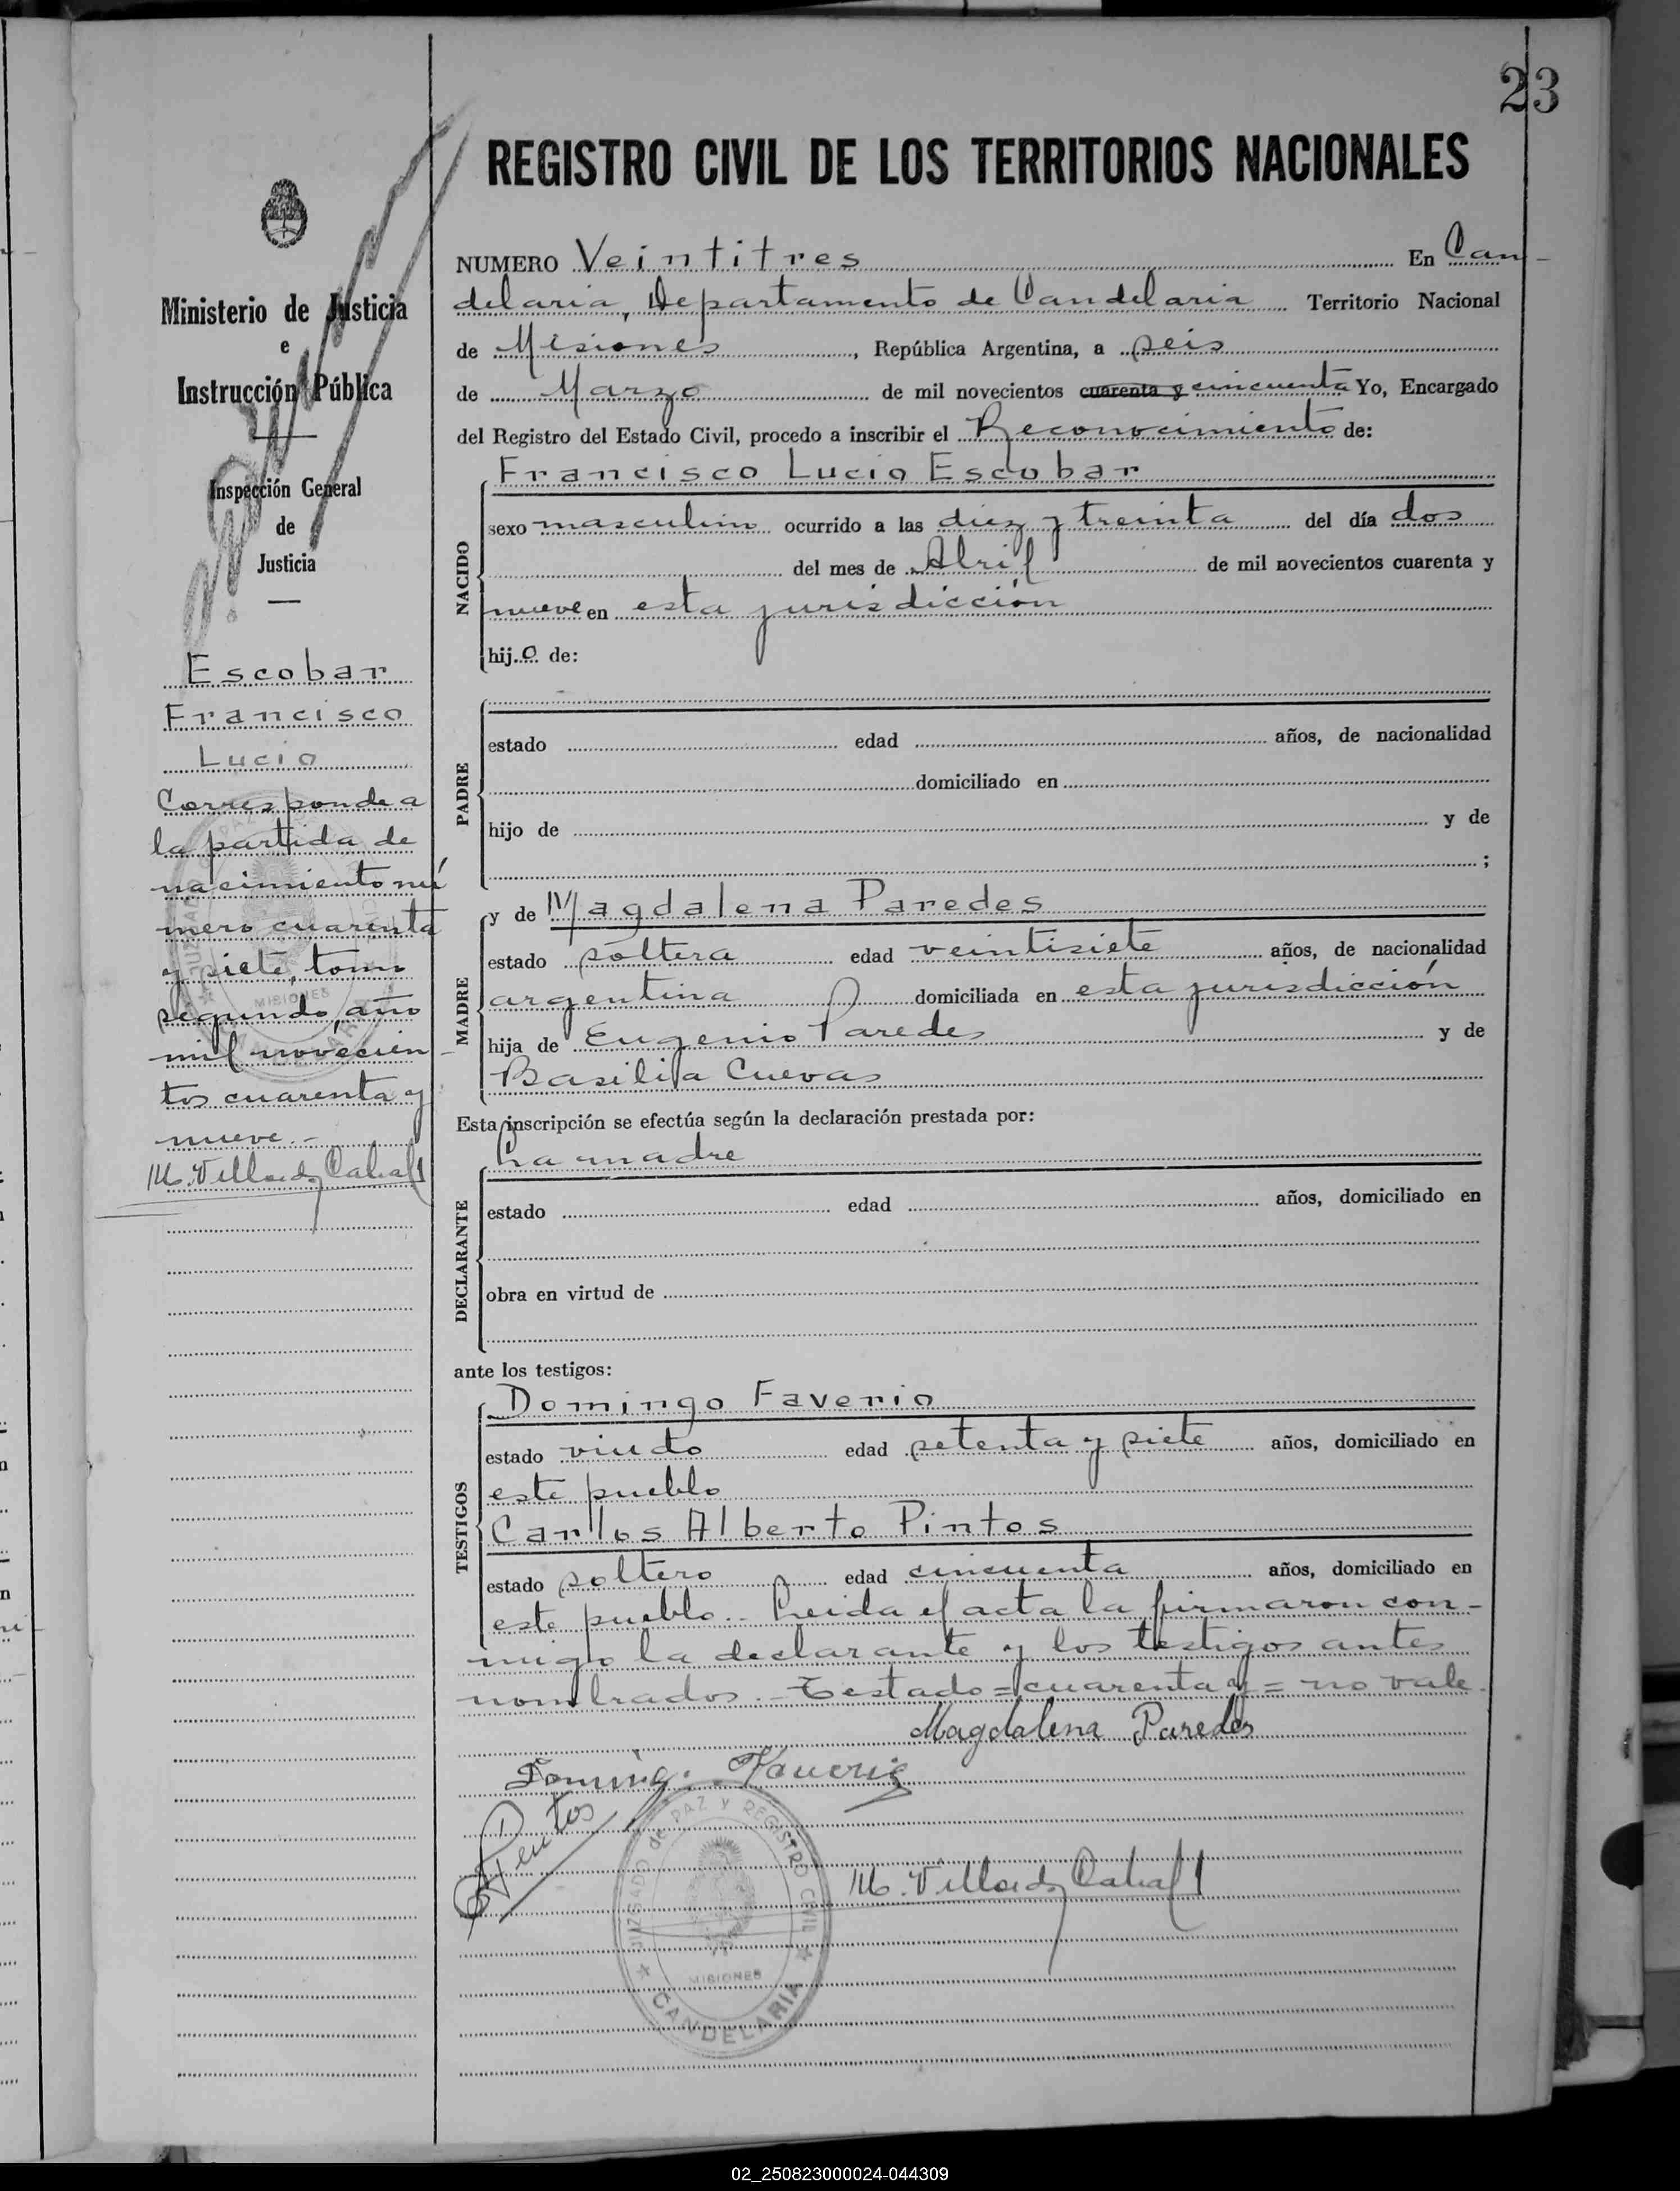 23
REGISTRO CIVIL DE LOS TERRITORIOS NACIONALES
Ministerio de Justicia
e
Instrucción Pública
Inspección General
de
Justicia
Escobar
Francisco
Lucio
Corresponde a
la partida de
nacimiento nú
mero cuarenta
y siete, tomo
segundo, año
mil novecien-
tos cuarenta y
nueve.-
NUMERO Veintitres En Can-
delaria, Departamento de Candelaria Territorio Nacional
de Misiones, República Argentina, a seis
de Marzo de mil novecientos cuarenta y cincuenta Yo, Encargado
del Registro del Estado Civil, procedo a inscribir el Reconocimiento de:
Francisco Lucio Escobar
NACIDO
sexo masculino ocurrido a las diez y treinta del día dos
del mes de Abril de mil novecientos cuarenta y
nueve en esta jurisdicción
hijo de:
PADRE
estado edad años, de nacionalidad
domiciliado en
hijo de y de
;
MADRE
y de Magdalena Paredes
estado soltera edad veintisiete años, de nacionalidad
argentina domiciliada en esta jurisdicción
hija de Eugenio Paredes y de
Basilia Cuevas
Esta inscripción se efectúa según la declaración prestada por:
La madre
DECLARANTE
estado edad años, domiciliado en
obra en virtud de
ante los testigos:
TESTIGOS
Domingo Faverio
estado viudo edad setenta y siete años, domiciliado en
este pueblo
Carlos Alberto Pintos
estado soltero edad cincuenta años, domiciliado en
este pueblo.- Leida el acta la firmaron con-
migo la declarante y los testigos antes
nombrados.- Testado=cuarenta y= no vale.
Magdalena Paredes
Pintos
JUZGADO de PAZ Y REGISTRO CIVIL
MISIONES
CANDELARIA
02_250823000024-044309